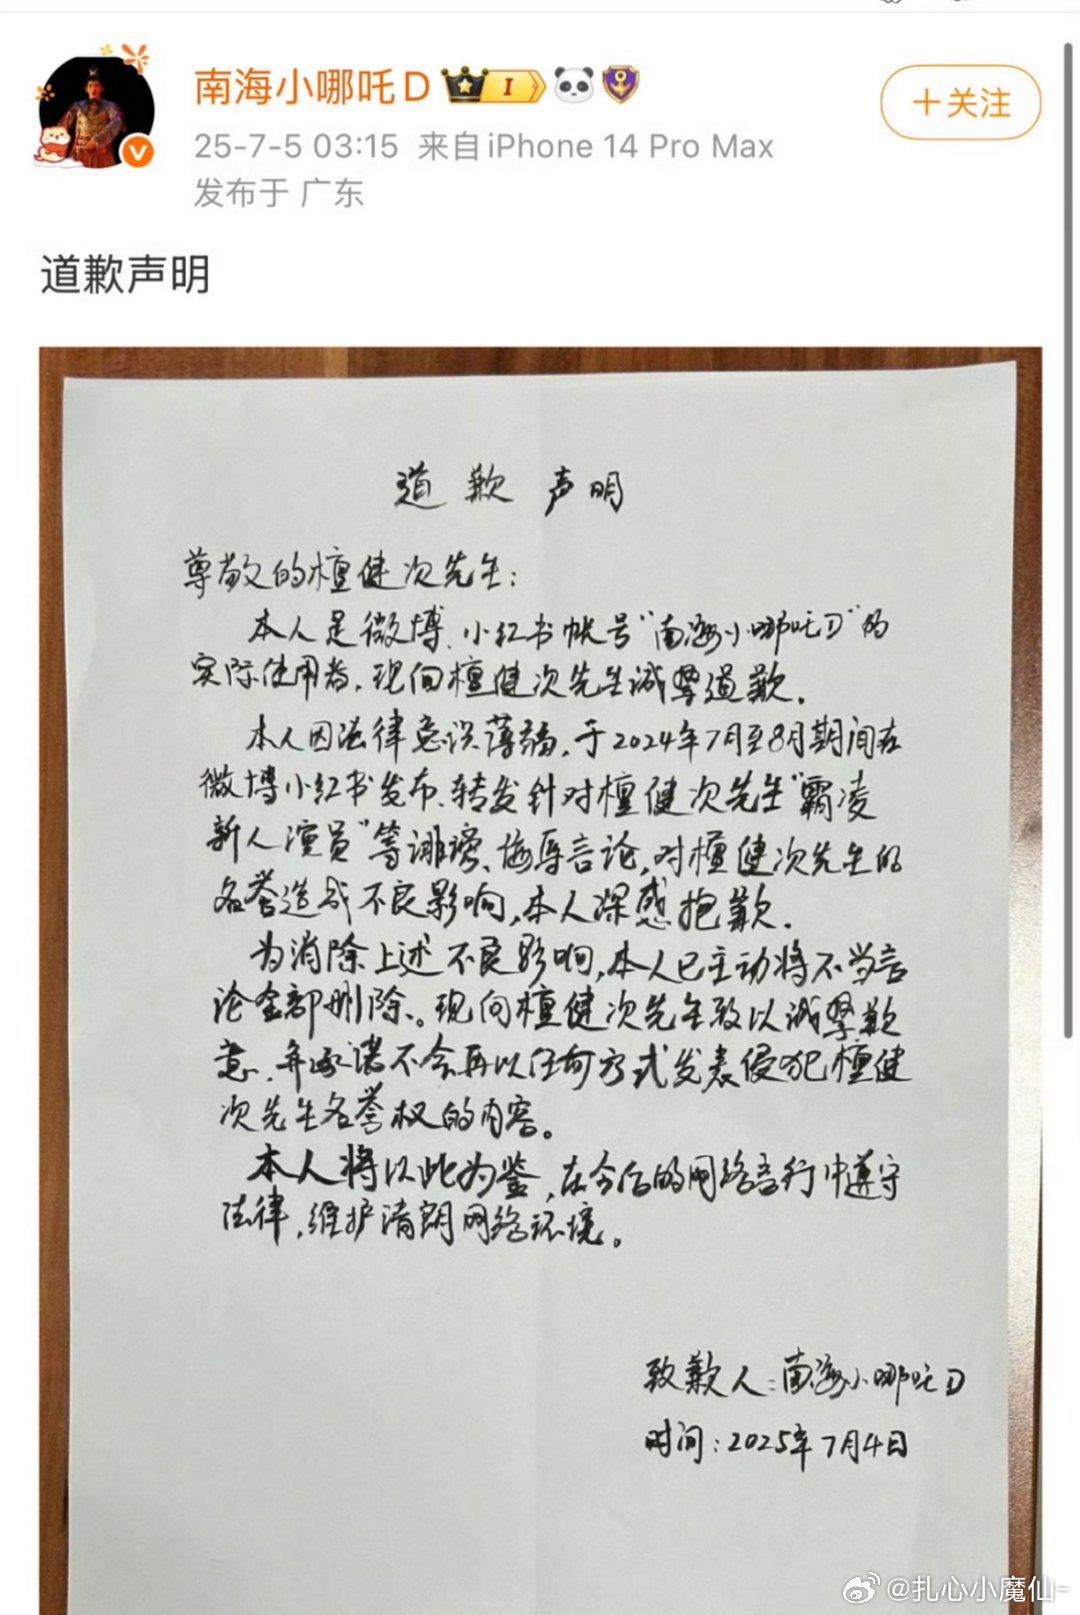 南海小哪吒D I
+关注
25-7-5 03:15 来自 iPhone 14 Pro Max
发布于 广东
道歉声明
道歉声明
尊敬的檀健次先生:
本人是微博、小红书帐号"南海小哪吒D"的
实际使用者,现向檀健次先生诚挚道歉。
本人因法律意识薄弱,于2024年7月至8月期间在
微博小红书发布、转发针对檀健次先生"霸凌
新人演员"等诽谤、侮辱言论,对檀健次先生的
名誉造成不良影响,本人深感抱歉。
为消除上述不良影响,本人已主动将不当言
论全部删除。现向檀健次先生致以诚挚歉
意,并承诺不会再以任何方式发表侵犯檀健
次先生名誉权的内容。
本人将以此为鉴,在今后的网络言行中遵守
法律,维护清朗网络环境。
致歉人:南海小哪吒D
时间:2025年7月4日
@扎心小魔仙=